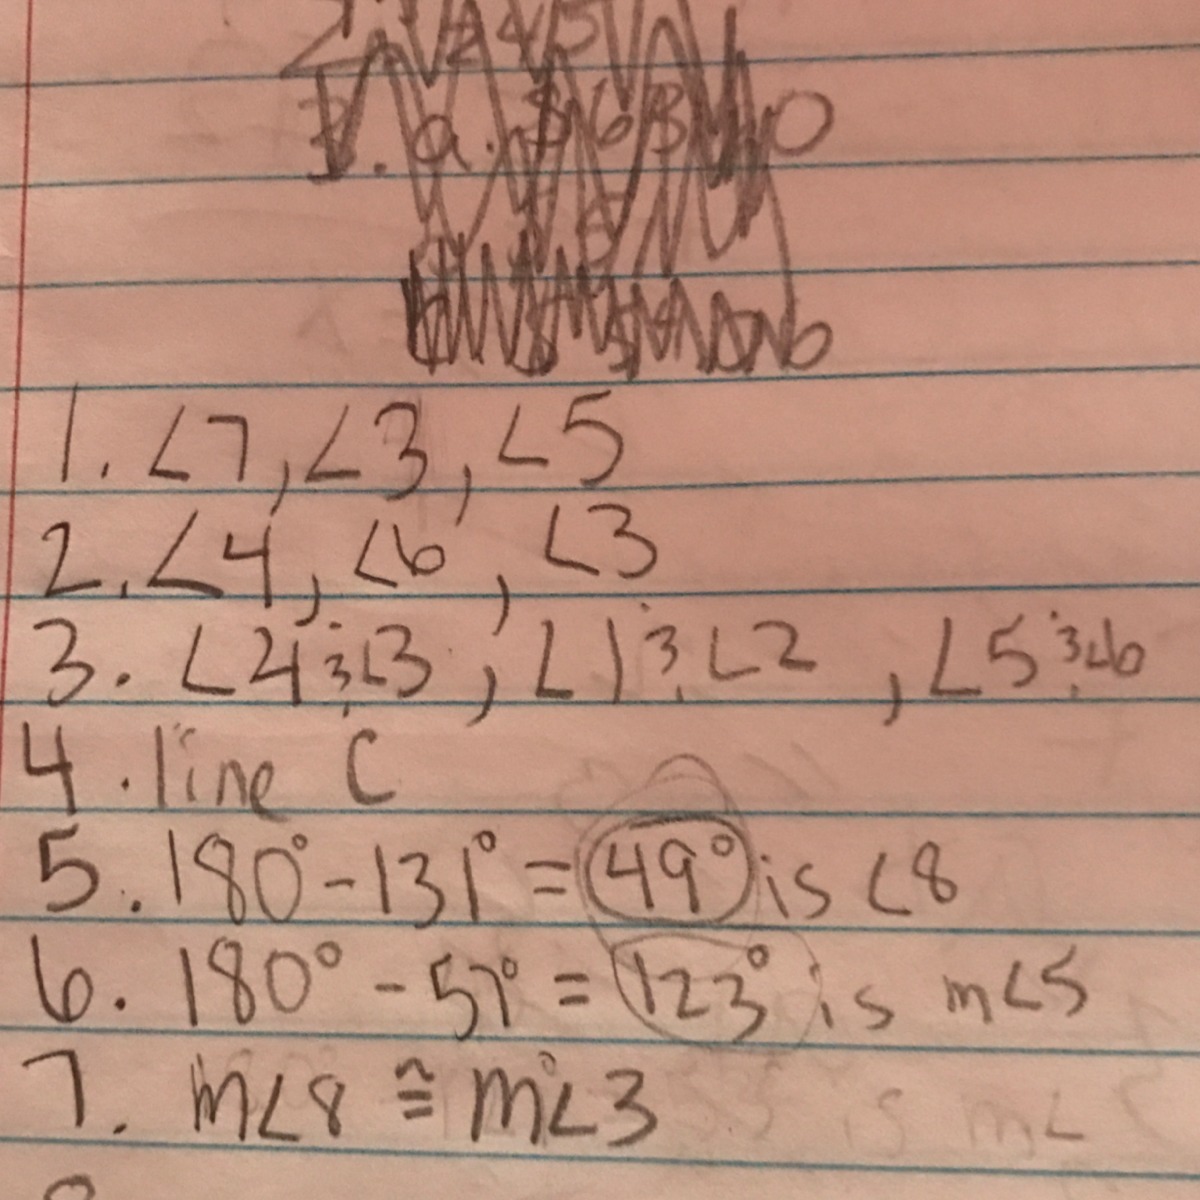 1. ∠7, ∠3, ∠5
2. ∠4, ∠6, ∠3
3. ∠4 ; ∠3, ∠1 ; ∠2, ∠5 ; ∠6
4. line C
5. 180° - 131° = 49° is ∠8
6. 180° - 57° = 123° is m∠5
7. m∠8 ≅ m∠3